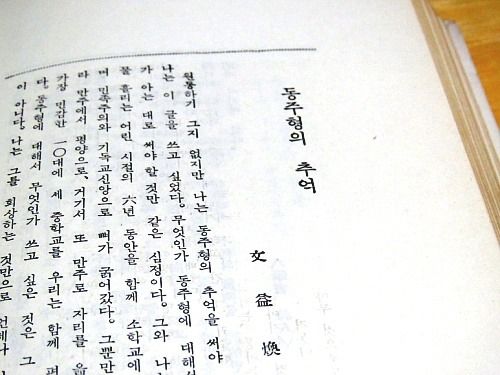 동주형의 추억
文益煥
원통하기 그지 없지만 나는 동주형의 추억을 써야
나는 이 글을 쓰고 싶었다. 무엇인가 동주형에 대해서
가 아는 대로 써야 할것만 같은 심정이다. 그와 나는
물 흘리는 어린 시절의 六년 동안을 함께 소학교에
며 민족주의와 기독교신앙으로 뼈가 굵어갔다. 그뿐만
라 만주에서 평양으로, 거기서 또 만주로 자리를 옮
가장 민감한 一〇대에 세 중학교를 우리는 함께
다. 동주형에 대해서 무엇인가 쓰고 싶은 것은 그
이 아니다. 나는 그를 회상하는 것만으로 언제나